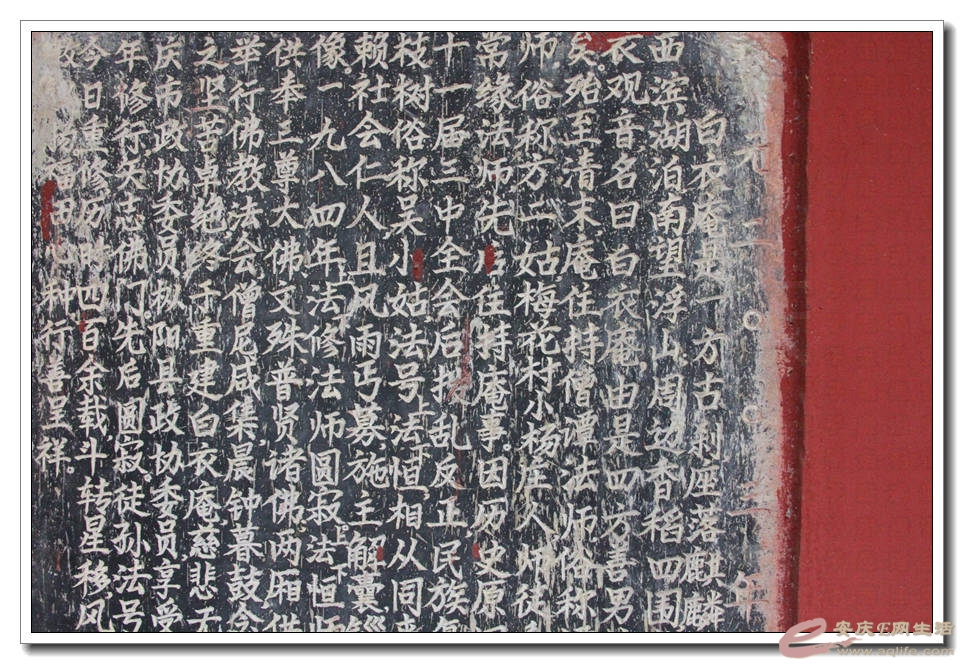 二〇〇三年
白衣庵是一方古刹座落麒麟
西滨湖泊南望浮山周边香稻四围
衣观音名曰白衣庵由是四方善男
矣殆至清末庵住持僧谭法师俗称
师俗称方二姑梅花村小杨庄人师徒
常缘法师先后住持庵事因历史原
十一届三中全会后拨乱反正民族
枝树俗称吴小姑法号法恒相从同
赖社会仁人且风雨丐募施主解囊
像。一九八四年法修法师圆寂法恒
供奉三尊大佛文殊普贤诸佛两厢供
举行佛教法会僧尼咸集晨钟暮鼓今
之坚苦卓绝终于重建白衣庵慈悲无
庆市政协委员枞阳县政协委员享受
年修行矢志佛门。先后圆寂。徒孙法号
今日重修历四百余载斗转星移风
种行善呈祥。
安庆E网生活
www.aqlife.com